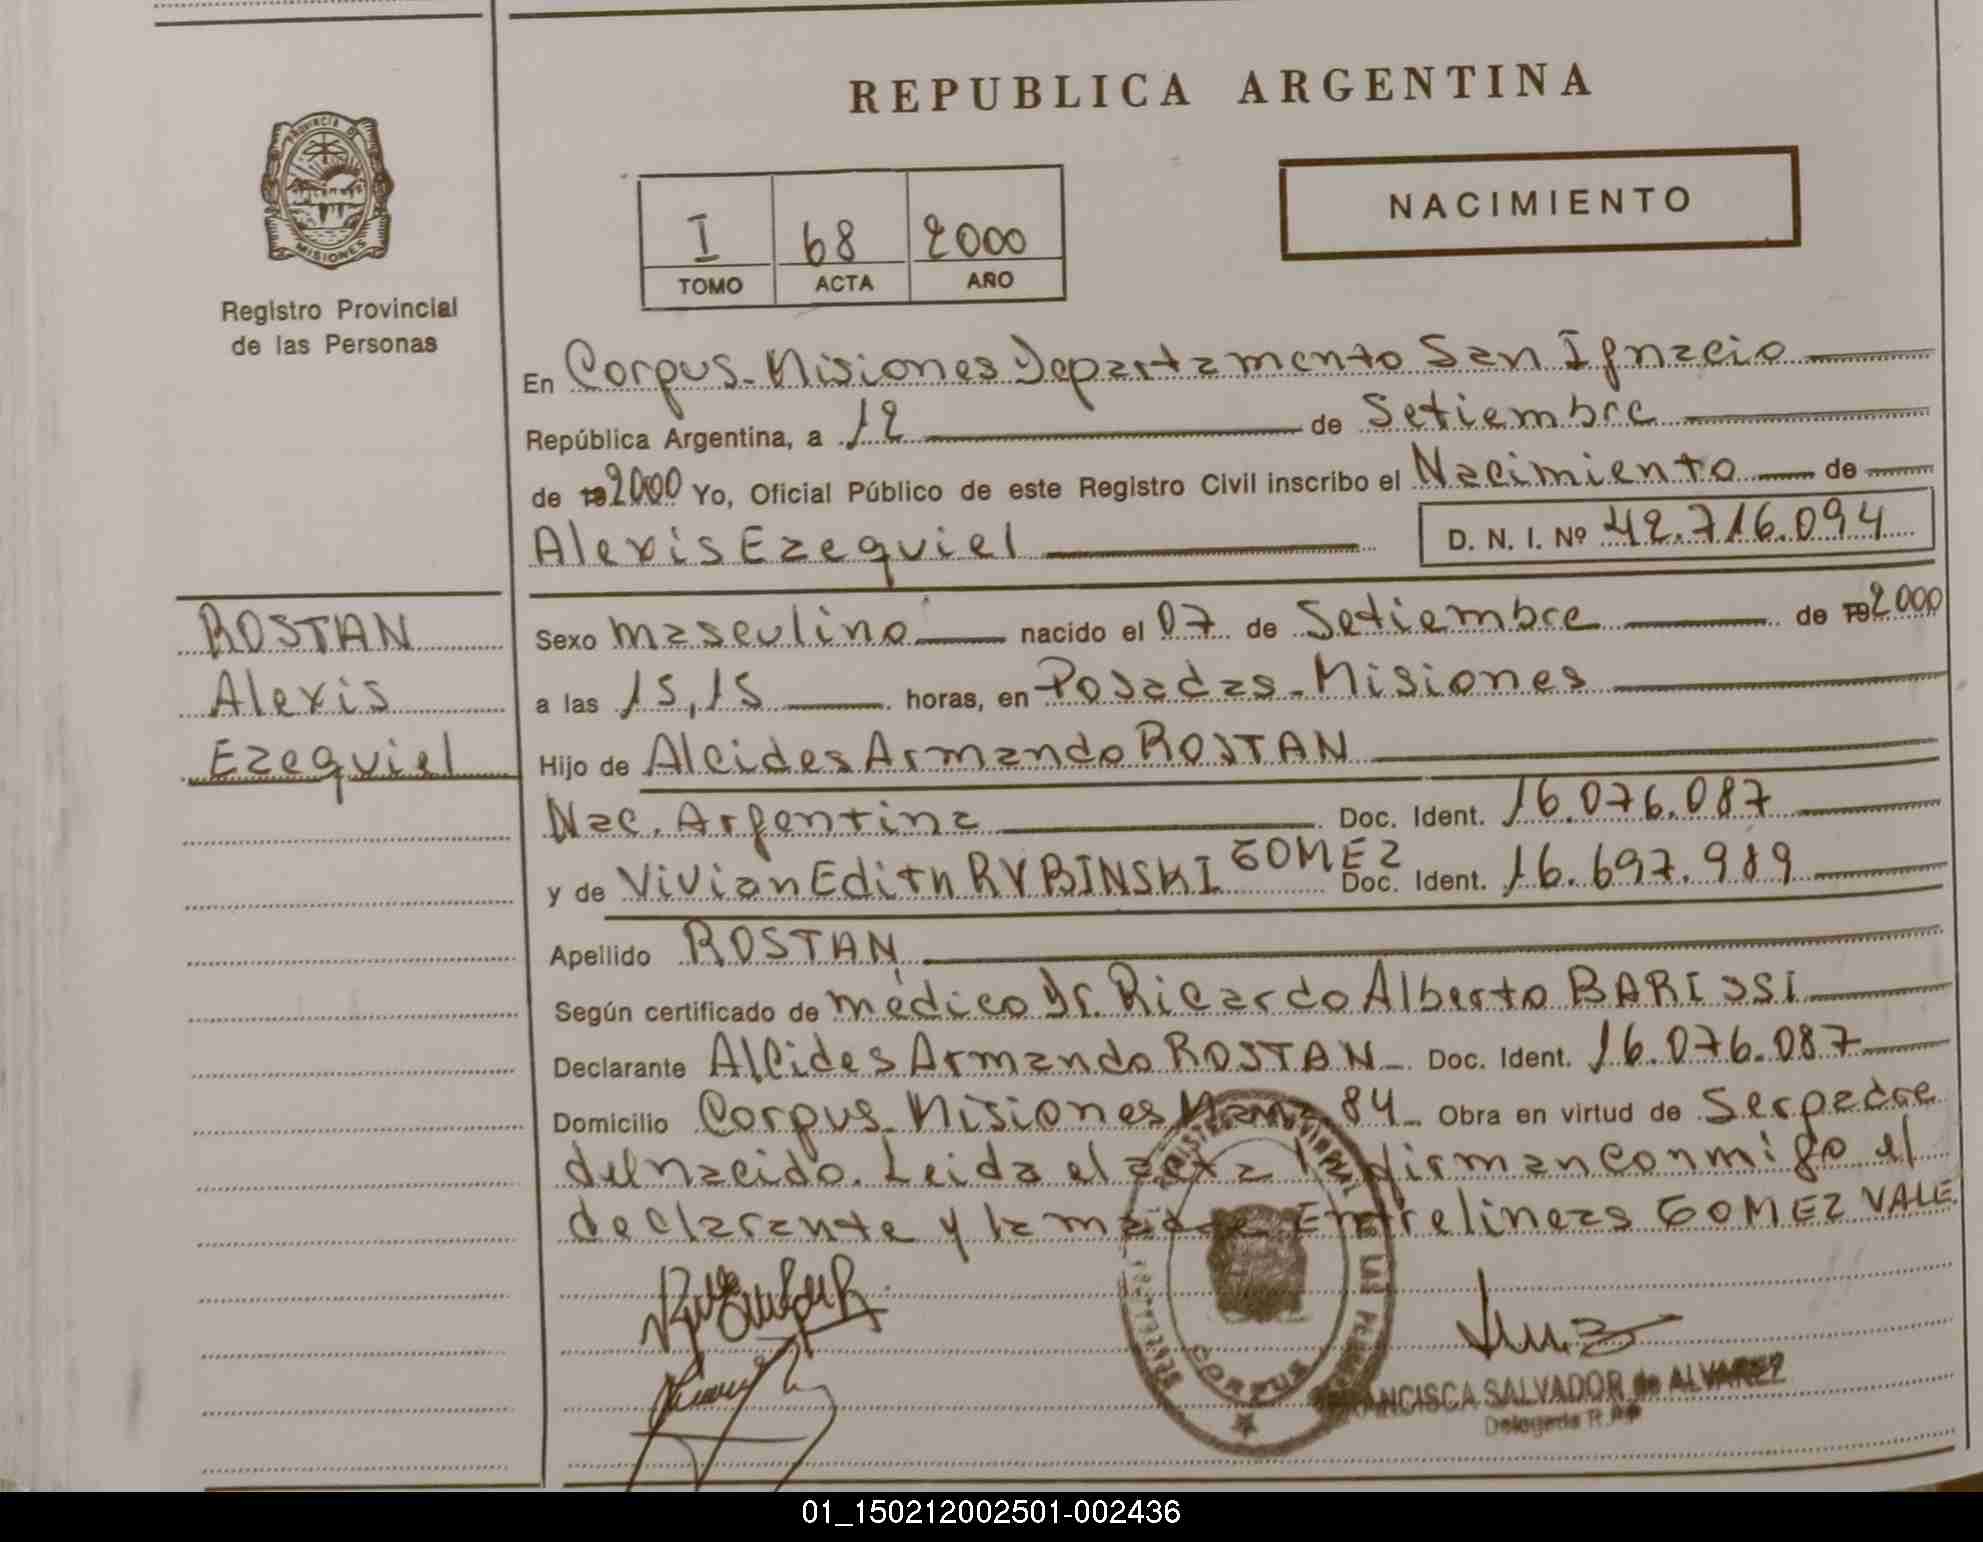 REPUBLICA ARGENTINA
PROVINCIA DE
MISIONES
Registro Provincial
de las Personas
NACIMIENTO
I 68 2000
TOMO ACTA AÑO
En Corpus-Misiones Departamento San Ignacio
República Argentina, a 12 de Setiembre
de 19 2000 Yo, Oficial Público de este Registro Civil inscribo el Nacimiento de
Alexis Ezequiel D. N. I. Nº 42.716.094
ROSTAN
Alexis
Ezequiel
Sexo masculino nacido el 07 de Setiembre de 19 2000
a las 15,15 horas, en Posadas-Misiones
Hijo de Alcides Armando ROSTAN
Nac. Argentina Doc. Ident. 16.076.087
y de Vivian Edith RYBINSKI GOMEZ Doc. Ident. 16.697.989
Apellido ROSTAN
Según certificado de médico Dr. Ricardo Alberto BARISSI
Declarante Alcides Armando ROSTAN Doc. Ident. 16.076.087
Domicilio Corpus-Misiones 84 Obra en virtud de Ser padre
del nacido. Leida el acta la firman conmigo el
declarante y la madre Entrelineas GOMEZ VALE
CORPUS
FRANCISCA SALVADOR de ALVAREZ
Delegada R.P.P
01_150212002501-002436